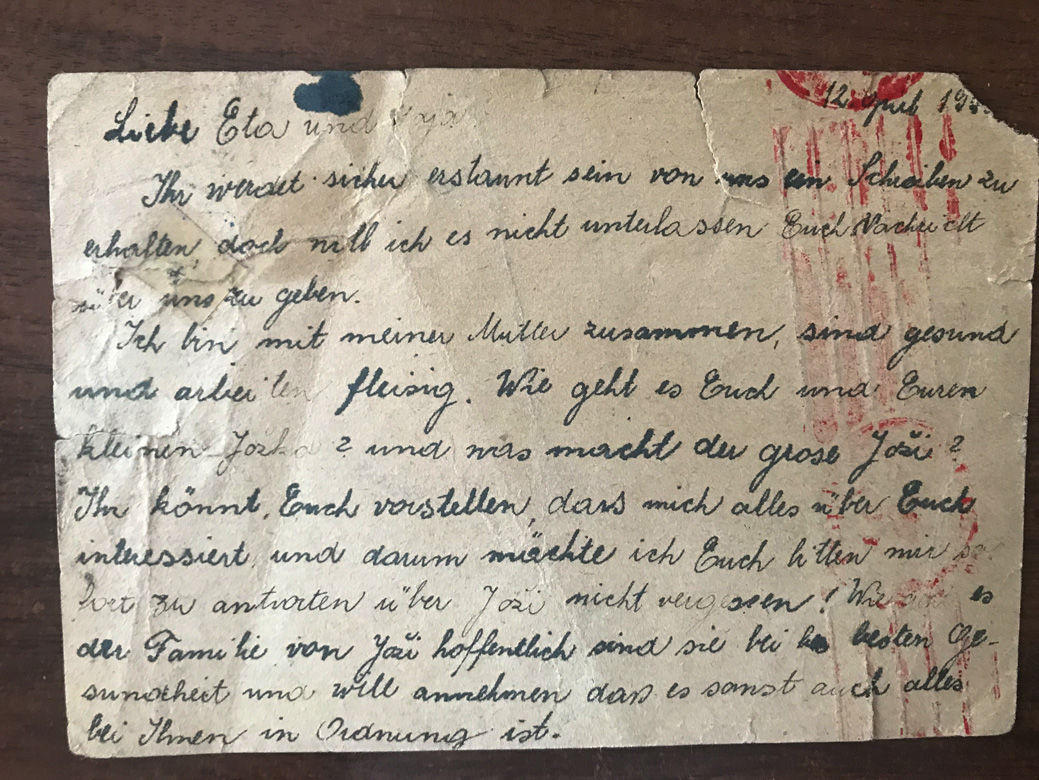 12. April 19
Liebe Eta und
Ihr werdet sicher erstaunt sein von uns ein Schreiben zu
erhalten, doch will ich es nicht unterlassen Euch Nachricht
über uns zu geben.
Ich bin mit meiner Mutter zusammen, sind gesund
und arbeiten fleisig. Wie geht es Euch und Euren
kleinen Jožka? und was macht der grose Joži?
Ihr könnt, Euch vorstellen, dass mich alles über Euch
interessiert, und darum möchte ich Euch bitten mir so
fort zu antworten über Joži nicht vergessen! Wie es
der Familie von Joži hoffentlich sind sie bei besten Ge-
sundheit und will annehmen dass es sonst auch alles
bei Ihnen in Ordnung ist.